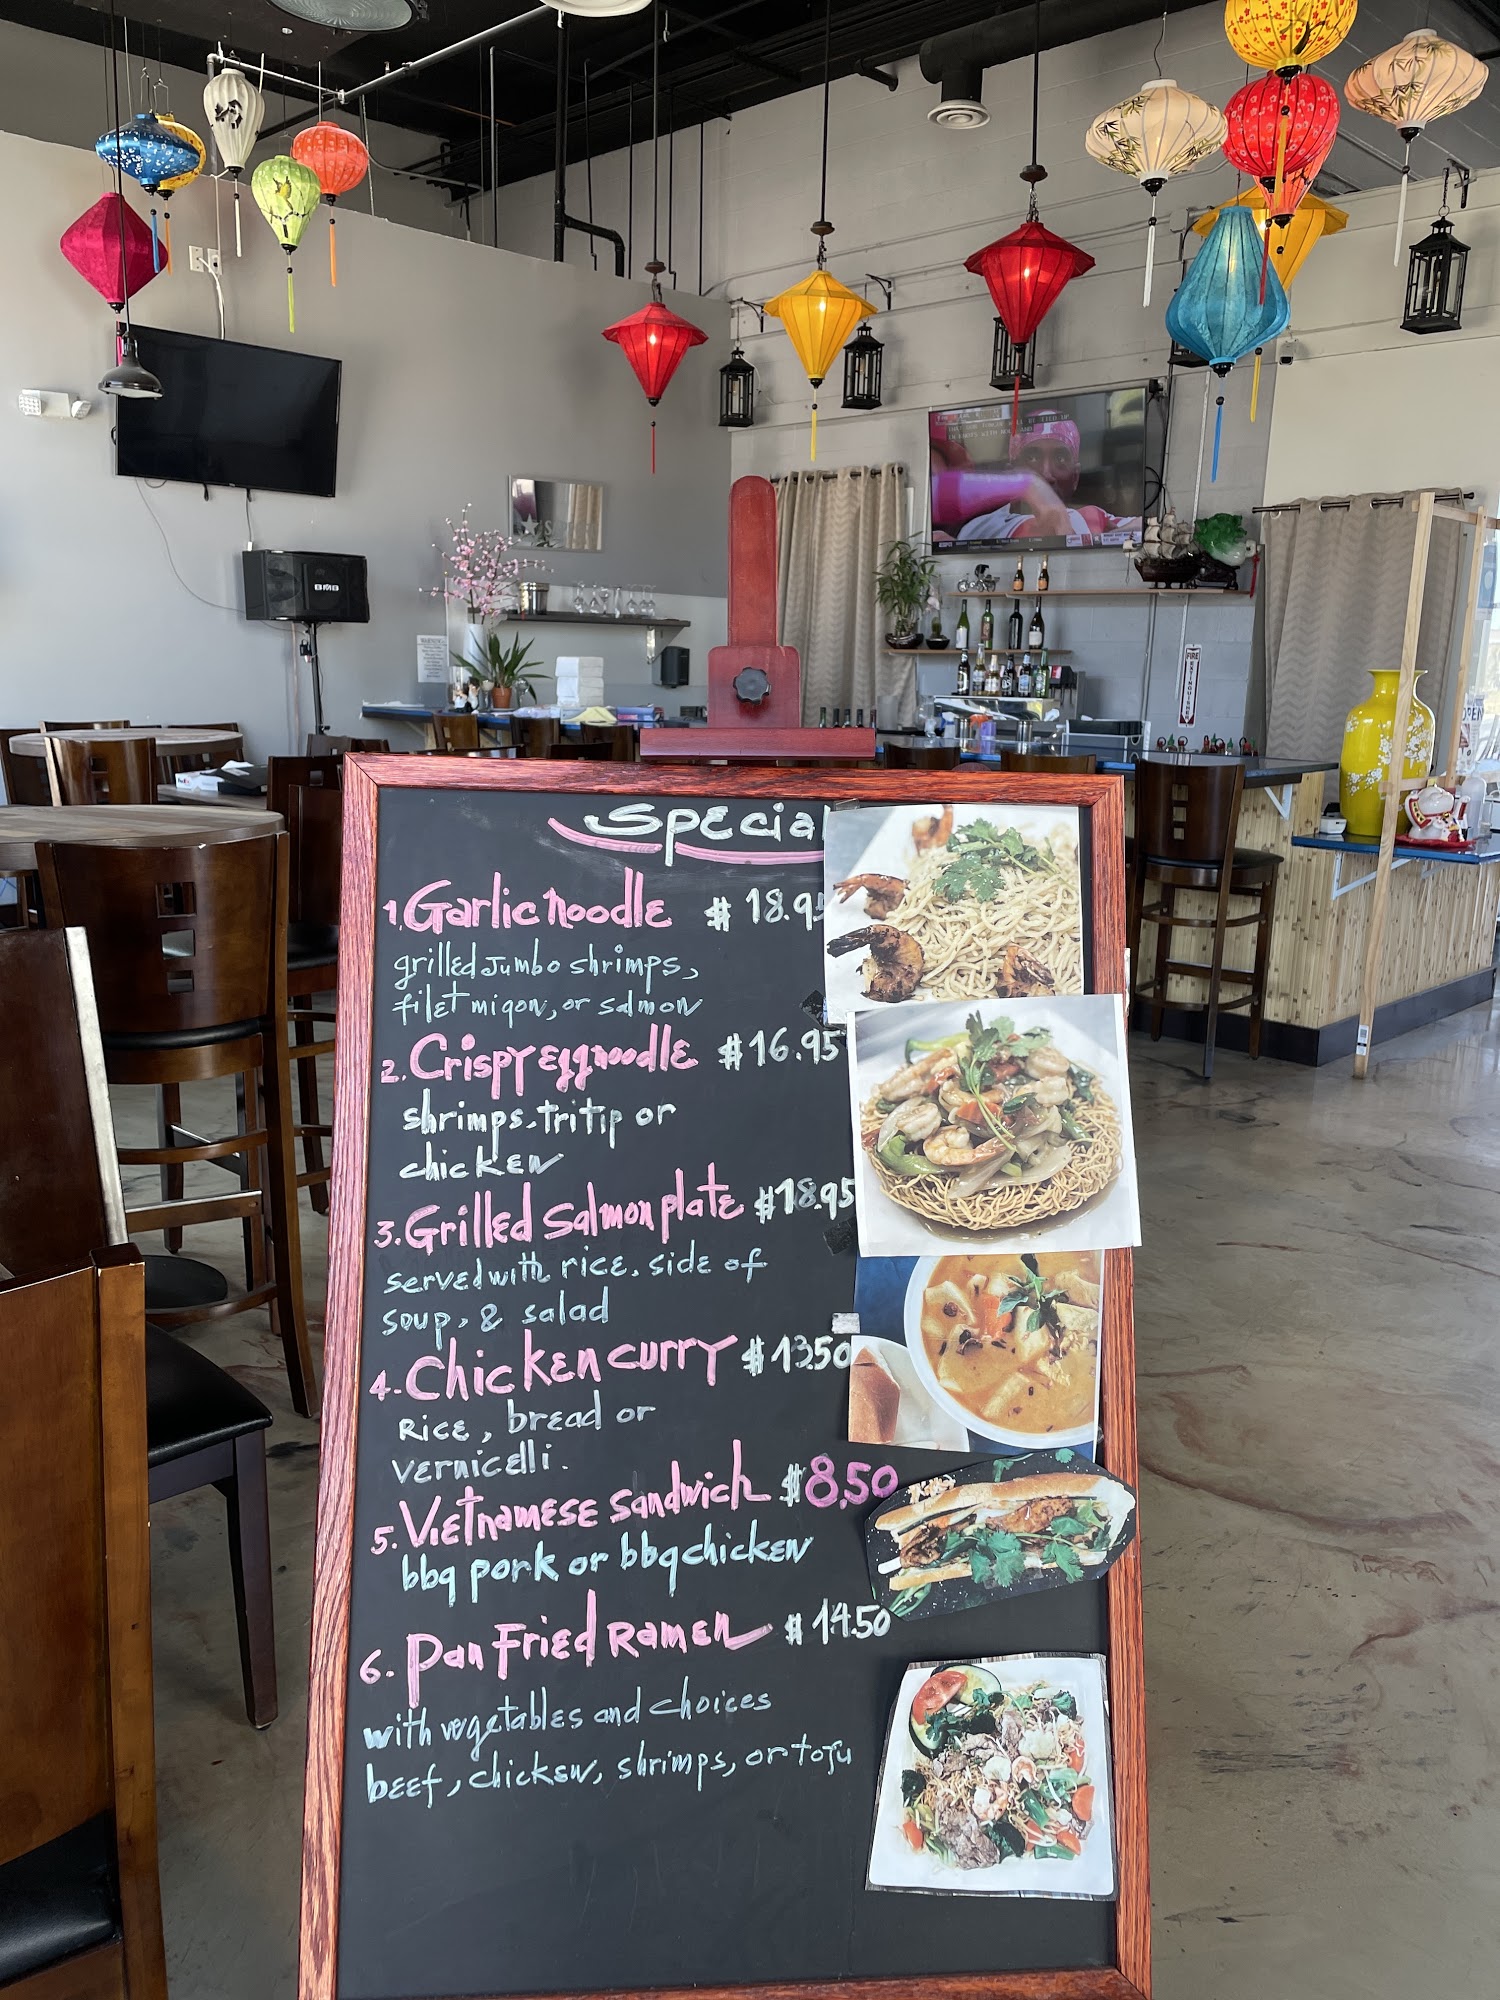 Special
1. Garlic noodle $ 18.95
grilled Jumbo shrimps,
filet miqon, or salmon
2. Crispy egg noodle $16.95
shrimps. tri tip or
chicken
3. Grilled Salmon plate $18.95
served with rice. side of
soup, & salad
4. Chicken curry $13.50
Rice, bread or
vernicelli.
5. Vietnamese sandwich $8.50
bbq pork or bbq chicken
6. Pan Fried Ramen $14.50
with vegetables and choices
beef, chicken, shrimps, or tofu
WARNING
FIRE
EXTINGUISHER
OPEN
ESPN
FedEx